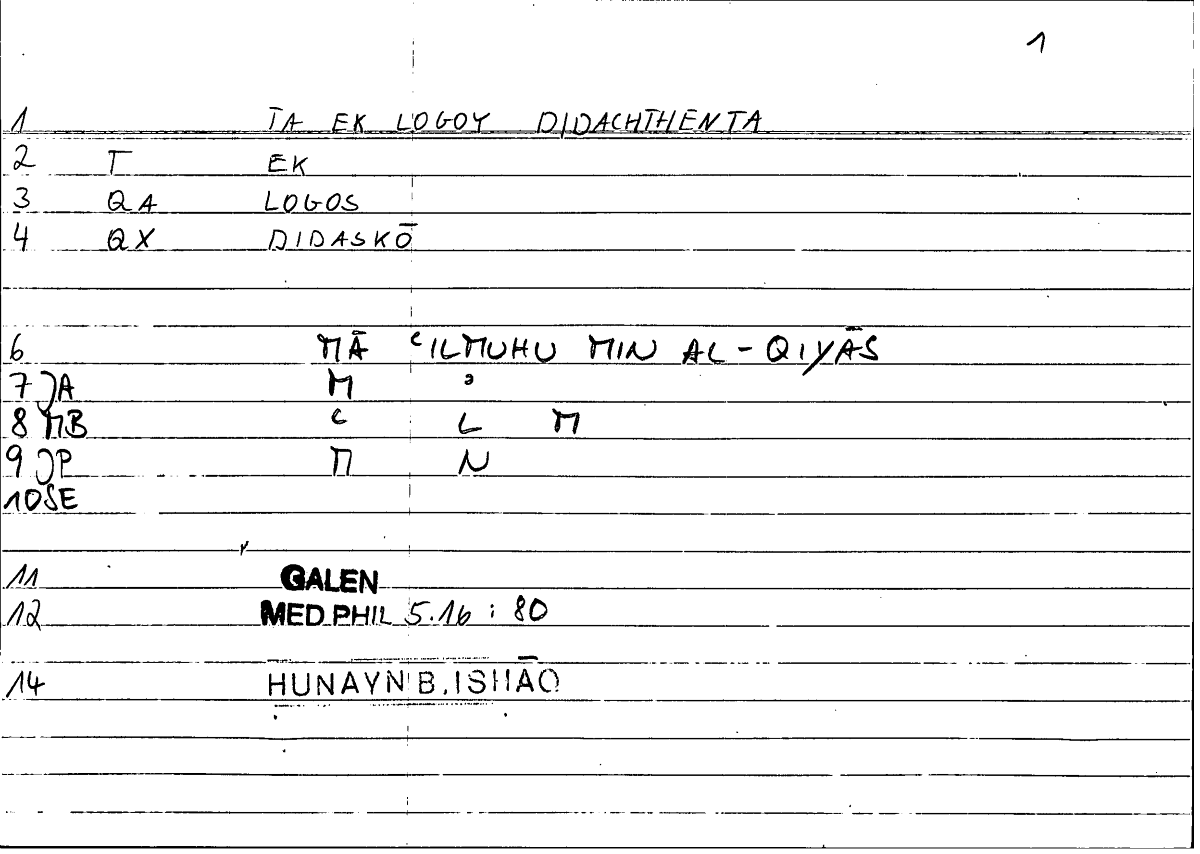 1
1 TA EK LOGOY DIDACHTHENTA
2 T EK
3 QA LOGOS
4 QX DIDASKŌ
6 MĀ ʿILMUHU MIN AL-QIYĀS
7 JA M ʾ
8 MB ʿ L M
9 JP M N
10 SE
11 GALEN
12 MED PHIL 5.16 : 80
14 HUNAYN B. ISHĀQ